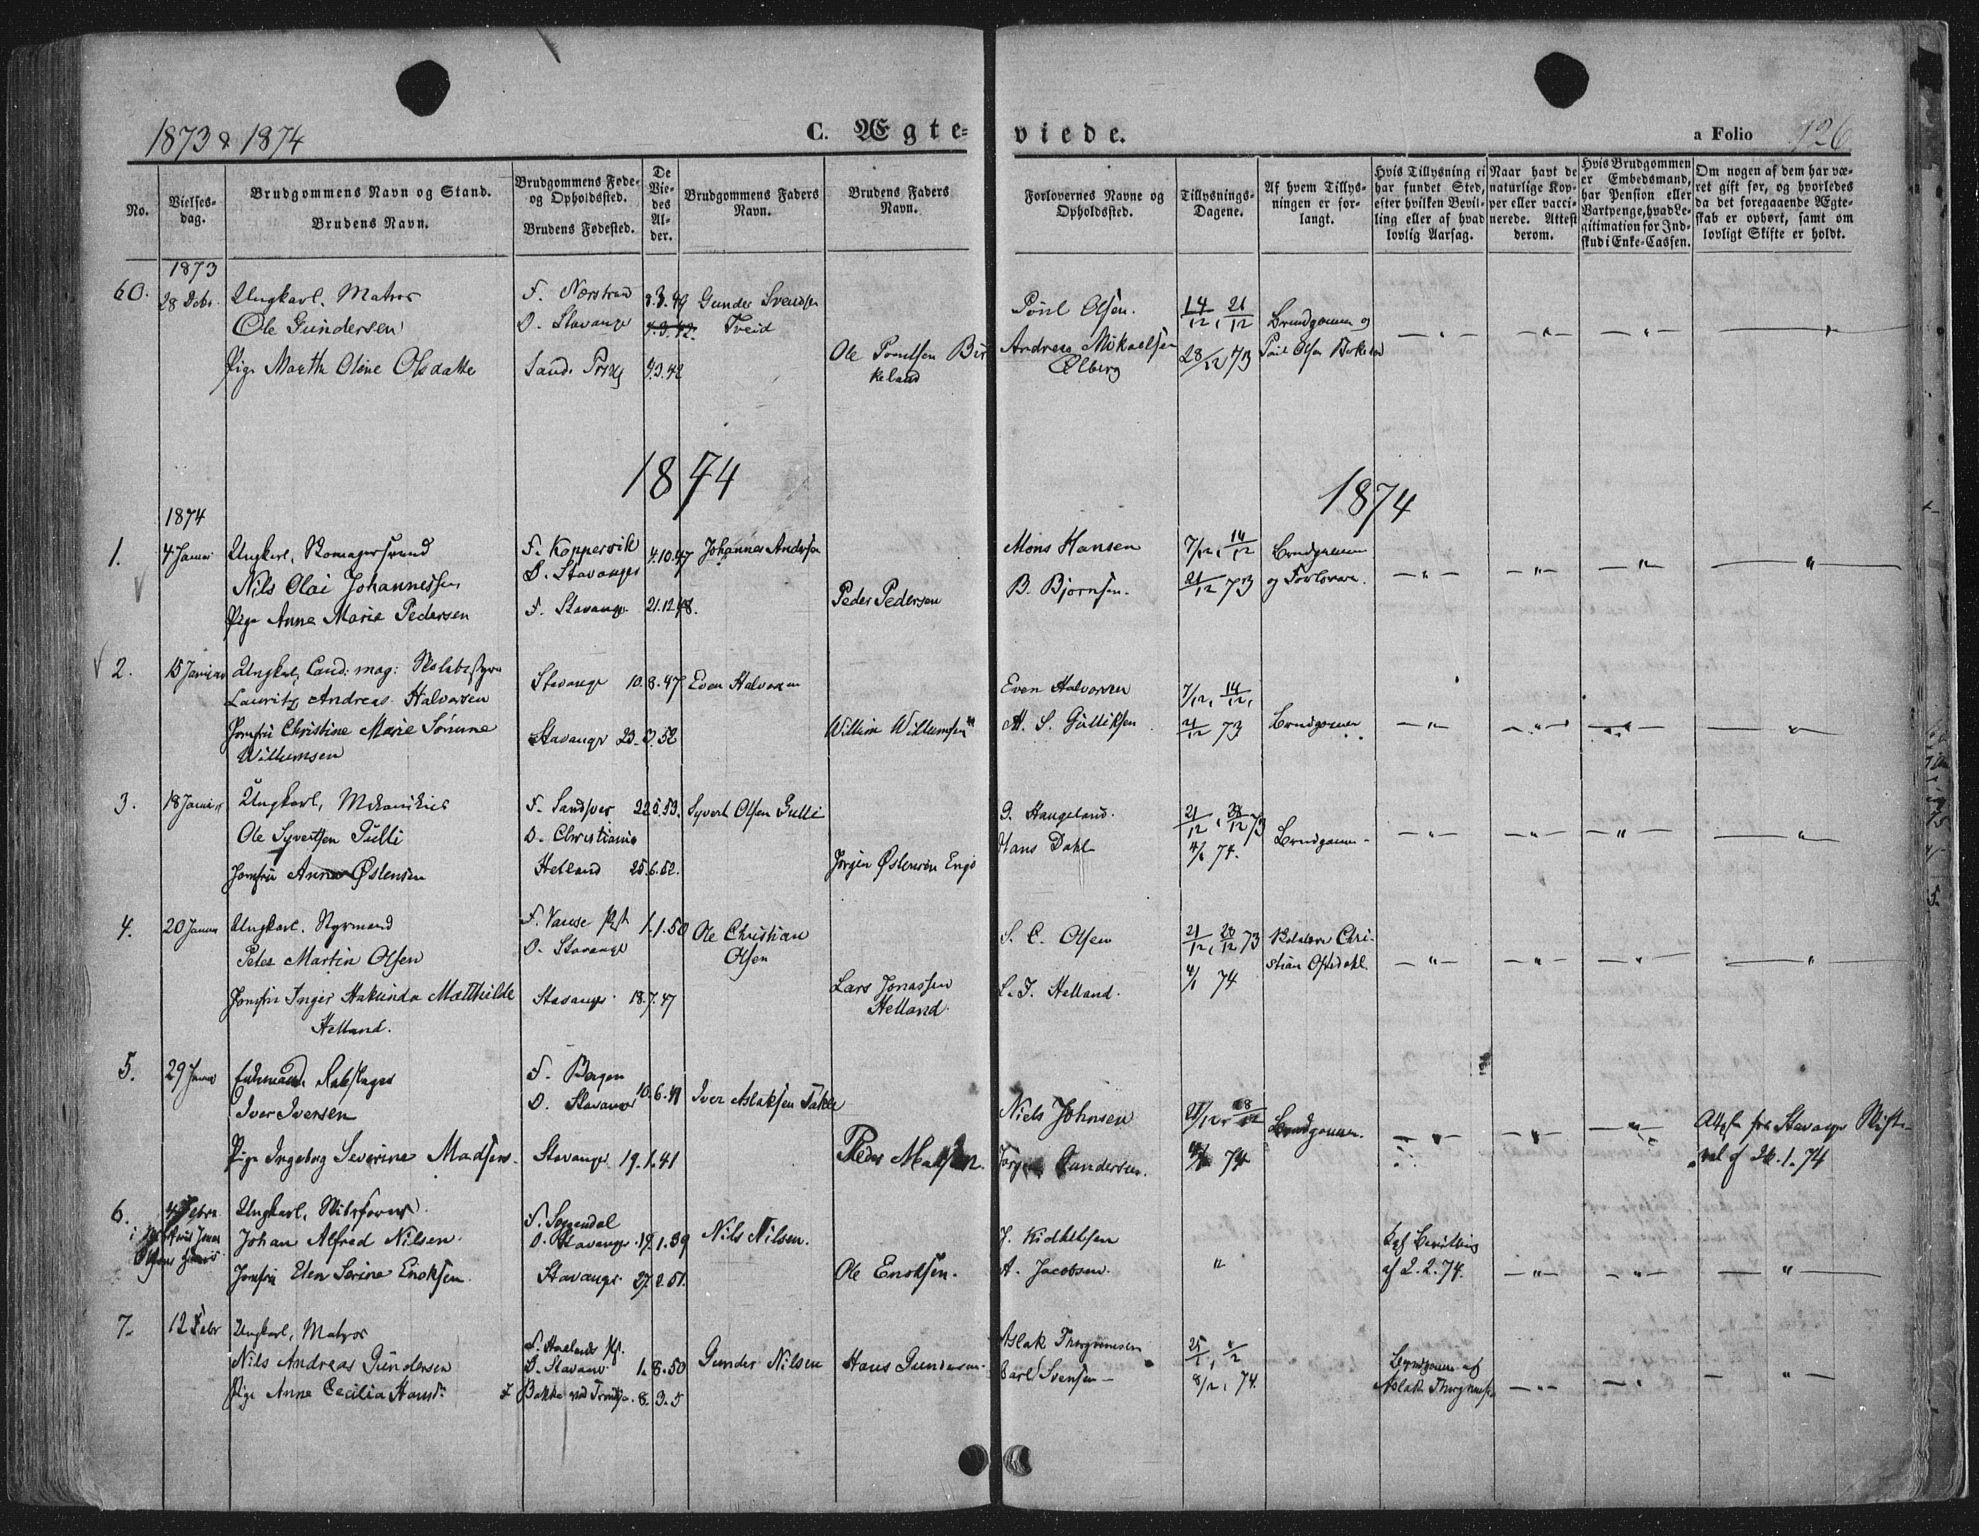 1873 & 1874
C. Ægte-
viede.
a Folio 126
No.
Vielses-
dag.
Brudgommens Navn og Stand.
Brudens Navn.
Brudgommens Føde-
og Opholdssted.
Brudens Fødested.
De
Vie-
des
Al-
der.
Brudgommens Faders
Navn.
Brudens Faders
Navn.
Forlovernes Navne og
Opholdssted.
Tillysnings-
Dagene.
Af hvem Tillys-
ningen er for-
langt.
Hvis Tillysning ei
har fundet Sted,
efter hvilken Bevil-
ling eller af hvad
lovlig Aarsag.
Naar havt de
naturlige Kop-
per eller vacci-
nerede. Attest
derom.
Hvis Brudgommen
er Embedsmand,
har Pension eller
Vartpenge, hvad Le-
gitimation for Ind-
skud i Enke-Cassen.
Om nogen af dem har væ-
ret gift før, og hvorledes
da det foregaaende Ægte-
skab er ophørt, samt om
lovligt Skifte er holdt.
1873
60. 28 Debr. Ungkarl, Matros
Ole Gundersen
Pige Marth Oline Olsdatte
F. Nærstrand
O. Stavange
4.3.42
Gunder Svendsen
Tveid
Ole Poulsen Bir
keland
Poul Olsen.
Andreas Mikaelsen
Ølberg
14/12, 21/12
28/12 73
Brudgommen og
— " —
1874
1874
1874
1. 4 Januar Ungkarl,
Nils Olai Johannessen
Pige Anne Marie Pedersen
F. Koppervik
O. Stavanger
F. Stavange
4.10.47
21.12.48.
Johannes Andersen
Peder Pedersen
Mons Hansen
B. Bjørnsen.
7/12, 14/12
21/12 73
Brudgommen
og Forlovere.
— " —
2. 15 Januar Ungkarl, Cand: mag:
Lauritz Andreas Halvorsen
Jomfru Christine Marie Sømme
Willumsen
Stavange 10.8.47
Stavange 23.3.52
Even Halvorsen
Willum Willumsen
Even Halvorsen
A. S. Gulliksen
7/12, 14/12,
21/12 73
Brudgommen
— " —
3. 18 Januar Ungkarl, Mekanikus
Ole Syvertsen Gulli
Jomfru Anne Østensen
F. Sandsvær 22.5.53.
O. Christiania
Helland 25.6.52.
Syvert Olsen Gulli
Jørgen Østensen Enge
G. Haugeland.
Hans Dahl
21/12, 28/12 73
4/1 74.
Brudgommen
— " —
4. 20 Januar Ungkarl, Styrmand
Peter Martin Olsen
Jomfru Inger Hakinda Matthilde
Helland.
F. Vanse Pgt
O. Stavange
Stavange 18.7.47
1.1.50
Ole Christian
Olsen
Lars Jonassen
Helland.
S. C. Olsen
L. J. Helland.
21/12, 28/12 73
4/1 74
Chri-
stian Oftedahl.
— " —
5. 29 Januar Enkemand, Rebslager
Iver Iversen
Pige Ingeborg Severine Madsen.
F. Bergen
O. Stavanger
Stavange 19.1.41
Iver Aslaksen Takle
Peder Madsen.
Niels Johnsen
Jørgen Gundersen.
21/12, 28/12
4/1 74
Brudgommen.
— " —
Attest fra Stavange Skifte-
ret af 26.1.74
6. 4 Febru Ungkarl,
Johan Alfred Nilsen
Jomfru Elen Serine Enoksen.
F. Soggendal
O. Stavange 19.1.39
Stavange 27.2.51.
Nils Nilsen.
Ole Enoksen.
J. Kidkelsen
A. Jacobsen
"
Kgl Bevilling
af 2.2.74.
— " —
7. 12 Febr Ungkarl, Matros
Nils Andreas Gundersen
Pige Anne Cecilia Hansd:
O. Stavange 1.8.50
8.3.5
Gunder Nilsen
Hans Gundersen
Aslak Thorgrimsen
Carl Svensen
25/1, 1/2
8/2, 74.
Brudgommen af
Aslak
— " —